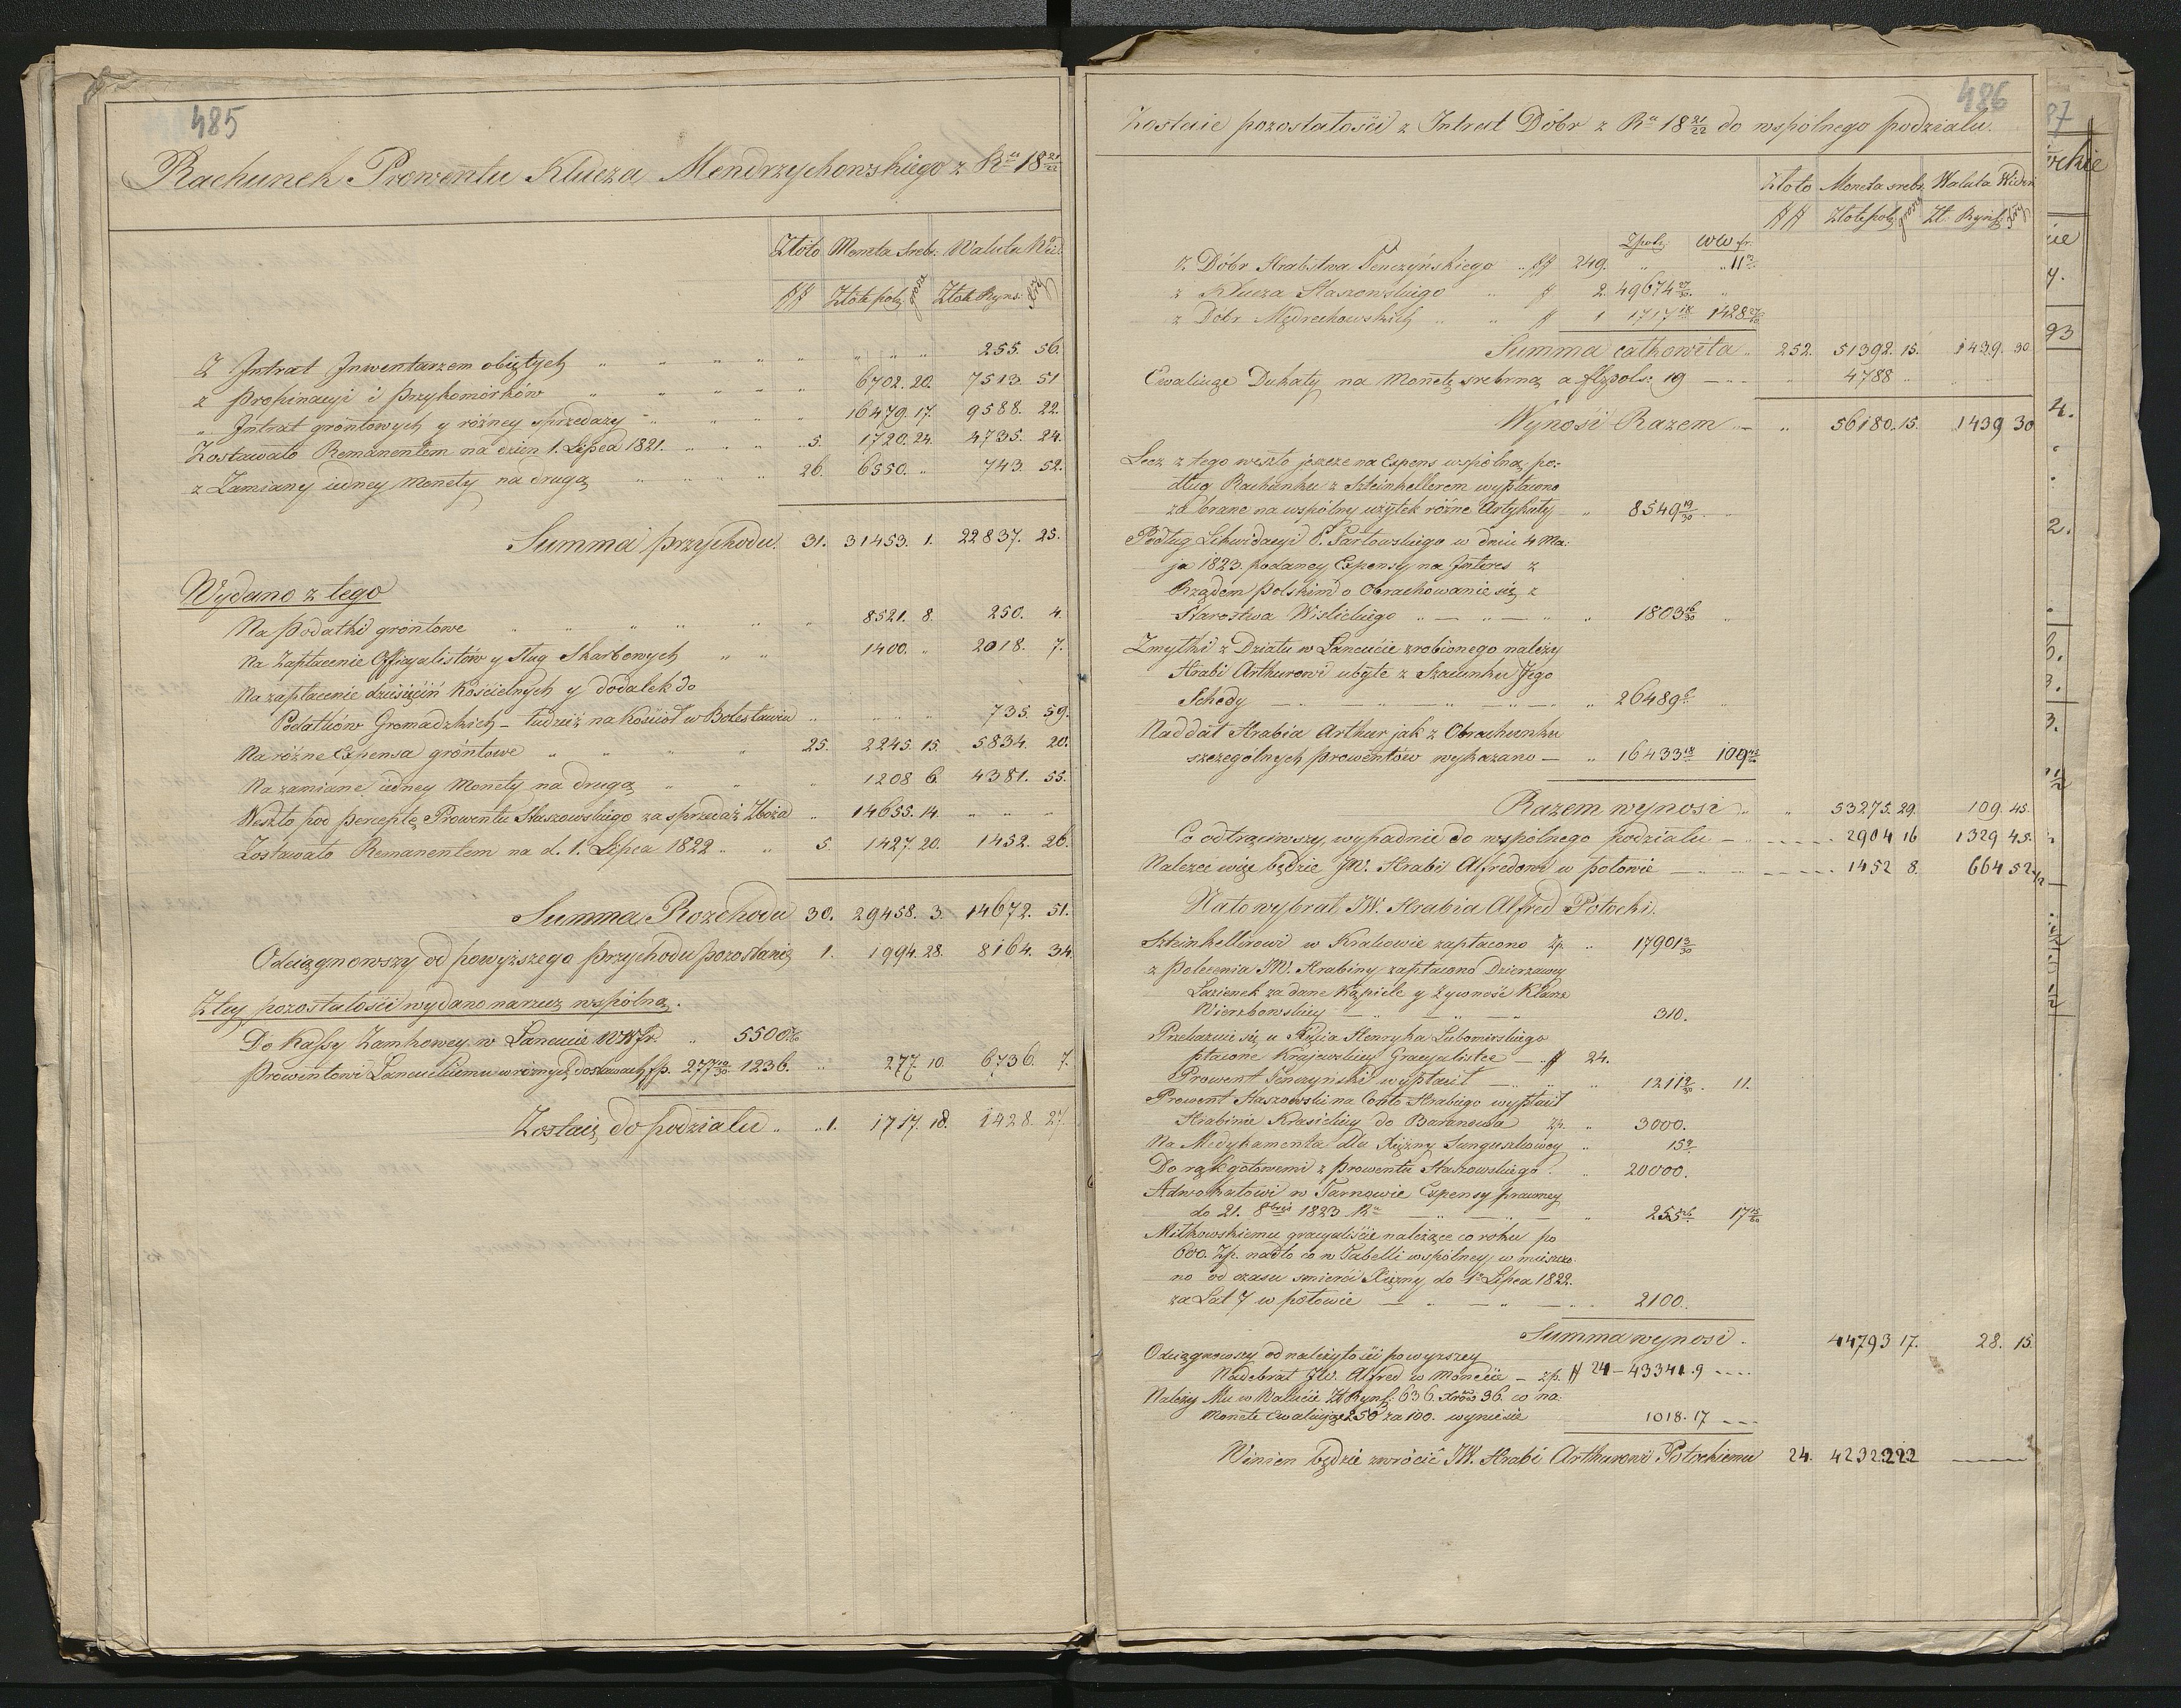 485
Rachunek Prowentu Klucza Mendrzychowskiego z Ru 18 21/22
Złoto Moneta srebr. Waluta Wie:
## Złote pol: grosz Złote Ryns: Xry
Z Intrat Inwentarzem obiętych " " " " " " " " 255. 56.
z Propinacyi i Przykomorków " " " " " 6702. 20. 7513. 51
" Intrat grontowych y rózney sprzedazy " " " " 16479. 17. 9588. 22.
Zostawało Remanentem na dzien 1. Lipca 1821. " " " 5. 1720. 24. 4735. 24.
z Zamiany iedney monety na drugą " " " " 26. 6550. " 743. 52.
Summa przychodu. 31. 31453. 1. 22837. 25.
Wydano z tego
Na Podatki grontowe " " " " " " 8521. 8. 250. 4.
Na Zapłacenie Officyalistów y Sług Skarbowych " " 1400. " 2018. 7.
Na zapłacenie dziesięciń Kościelnych y dodatek do
Podatków Gromadzkich – tudzież na Kościoł w Bolesławiu " " " " 735. 59.
Na rózne Expensa grontowe " " " " 25. 2245. 15. 5834. 20.
Na zamianę iedney monety na drugą " " " 1208 6. 4381. 55.
Weszło pod perceptę Prowentu Staszowskiego za sprzedaż Zboża " 14655. 14. " " "
Zostawało Remanentem na d. 1. Lipca 1822 " " 5. 1427. 20. 1452. 26.
Summa Rozchodu 30. 29458. 3. 14672. 51.
Odciągnowszy od powyzszego Przychodu pozostanie 1. 1994. 28. 8164. 34.
Z tey pozostałości wydano na rzecz wspólną.
Do Kassy Zamkowey w Łancucie WW fr. " 5500. 7/60
Prowentowi Łancuckiemu w róznych dostawach fp. 277 10/30 1236. " 277. 10. 6736. 7.
Zostaie do podziału " " 1. 1717. 18. 1428. 27.
486
Zostaie pozostałości z Intrat Dóbr z Ru 18 21/22 do wspólnego podziału.
Złoto Moneta srebr. Waluta Wieden
## Złote pol: grosz Zł. Ryńs: Xry
Zpol: WW fr.
z Dóbr Hrabstwa Tenczyńskiego " ## 249. " " 11 3/
z Klucza Staszowskiego " # 2. 49674 27/30. "
z Dobr Mędrechowskich " " # 1 1717 18 1428 27/60
Summa całkowita " 252. 51392. 15. 1439. 30
Ewaliuąc Dukaty na Monetę srebrną a flzpols: 19 — " " 4788 " " "
Wynosi Razem " — " 56180. 15. 1439 30
Lecz z tego weszło jeszcze na Expens wspólną po:
dług Rachunku z Szteinkellerem wypłacono
za brane na wspólny uzytek rózne Artykuły " 8549 19/30 "
Podług Likwidacyi P. Partowskiego w dniu 4 Ma:
ja 1823. podaney Expensy na Interes z
Rządem Polskim o Obrachowanie się z
Starostwa Wislickiego " — " — " " 1803 16/30 "
Zmyłki z Działu w Łancucie zrobionego nalezy
Hrabi Arthurowi ubyłe z Szacunku Jego
Schedy — — " — " — " — " 26489 6/ "
Naddał Hrabia Arthur jak z Obrachunku
szczególnych prowentów wykazano — " 16433 18 109 45
Razem wynosi " " 53275. 29. 109. 45.
Co odtrąciwszy, wypadnie do wspólnego podziału — " — — — 2904 16 1329 45.
Nalezec więc będzie JW. Hrabi Alfredowi w połowie — " — " — — — 1452 8. 664 52 1/2
Na to wybrał JW. Hrabia Alfred Potocki.
Szteinkellerowi w Krakowie zapłacono Zp. " 17901 3/30
z Polecenia JW. Hrabiny zapłacono Dzierzawcy
Łazienek za dane Kąpiele y zywność Klarze
Wierzbowskiey — " — " — " 310.
Przekazuie się u Xcia Henryka Lubomirskiego
płacone Krajewskiey Gracyalistce — " # 24.
Prowent Tenczyński wypłacił — " " " 1211 9/30. 11.
Prowent Staszowski na Conto Hrabiego wypłacił
Hrabinie Krasickiey do Baranowa Zp. " 3000.
Na Medykamenta dla Xiężny Sanguszkowey " 15 9/
Do rąk gotowemi z Prowentu Staszowskiego " 20000.
Adwokatowi w Tarnowie Expensy prawney
do 21. 8bris 1823 Ru — " — " — " 255 26 17 15/60
Mitkowskiemu gracyaliście nalezące co roku po
600. Zp. nadto co w Tabelli wspólney, w mieszczo
no od czasu smierci Xiężny do 1go Lipca 1822.
za Lat 7 w połowie — " — " — " 2100.
Summa wynosi . 44793 17. 28. 15.
Odciągnowszy od nalezytości powyzszey
Nadebrał JW. Alfred w Monecie — zp. # 24 — 43341. 9 — — —
Nalezy Mu w Walucie Zł Ryns: 636. Xrów 36. co na:
Monetę Ewaliuąc 250 za 100. wyniesie 1018. 17 — —
Winien będzie zwrócić JW. Hrabi Arthurowi Potockiemu 24. 42322 22 —